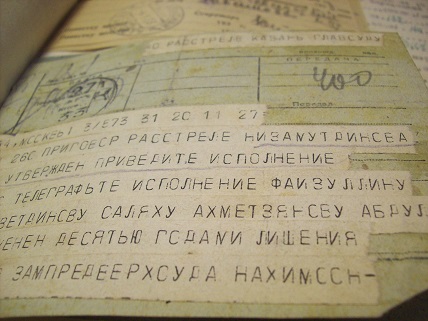 О РАССТРЕЛЕ КАЗАНЬ ГЛАВСУДУ
ПЕРЕДАЧА
400
Передал
МОСКВЫ 37573 31 20 11 27
26С ПРИГОВЕР РАССТРЕЛЕ НИЗАМУТДИНСВА
УТВЕРЖДЕН ПРИВЕДИТЕ ИСПОЛНЕНИЕ
ТЕЛЕГРАФЬТЕ ИСПОЛНЕНИЕ ФАИЗУЛЛИНУ
ВЕТДИНСВУ САЛЯХУ АХМЕТЗЯНСВУ АБДУЛ
МЕНЕН ДЕСЯТЬЮ ГСДАМИ ЛИШЕНИЯ
ЗАМПРЕДВЕРХСУДА НАХИМССН-